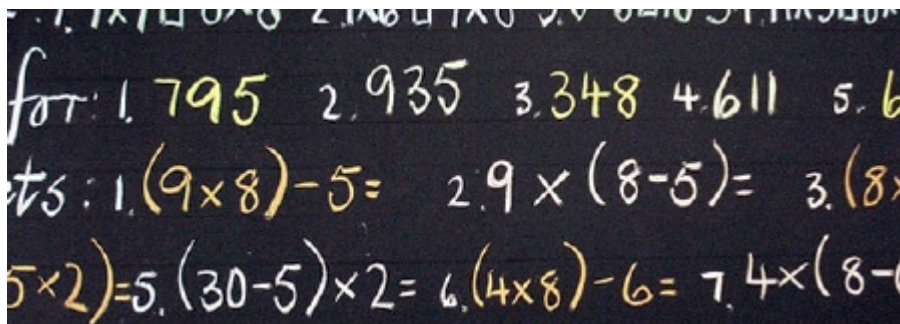 for: 1. 795 2. 935 3. 348 4. 611 5. 6
ts: 1. (9×8)-5= 2. 9 × (8-5)= 3. (8×
5×2)= 5. (30-5)×2= 6. (4×8)-6= 7. 4×(8-